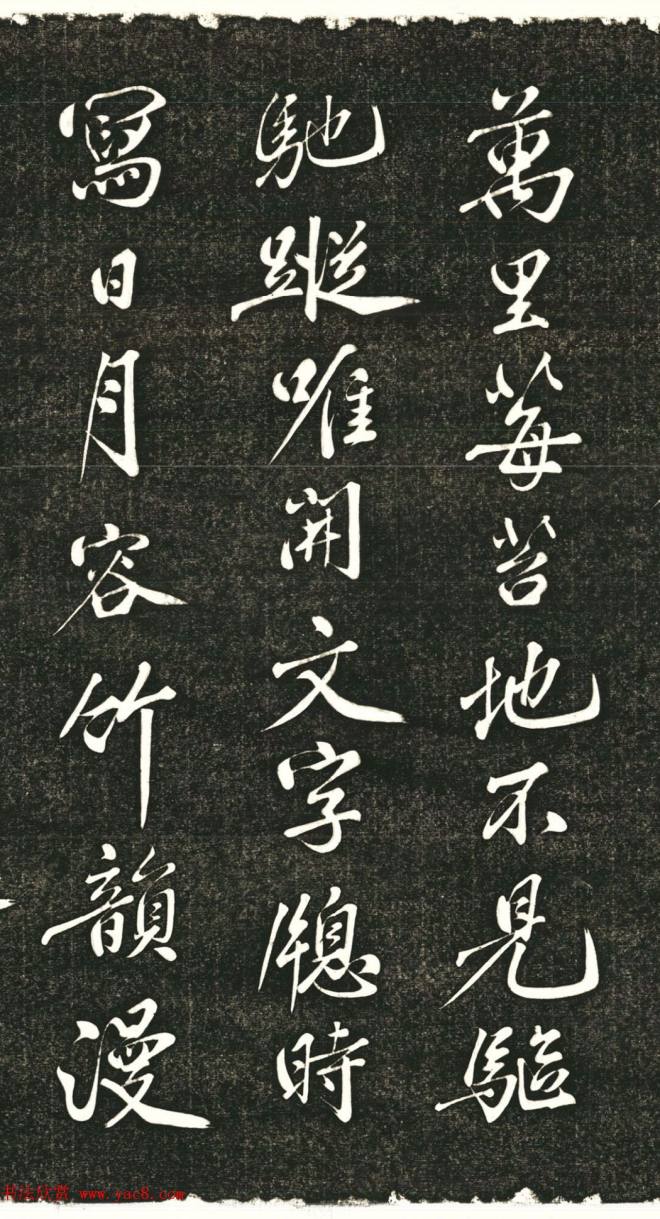 萬里莓苔地不見驅
馳蹤唯開文字牕時
寫日月容竹韻漫
书法欣赏 www.yac8.com